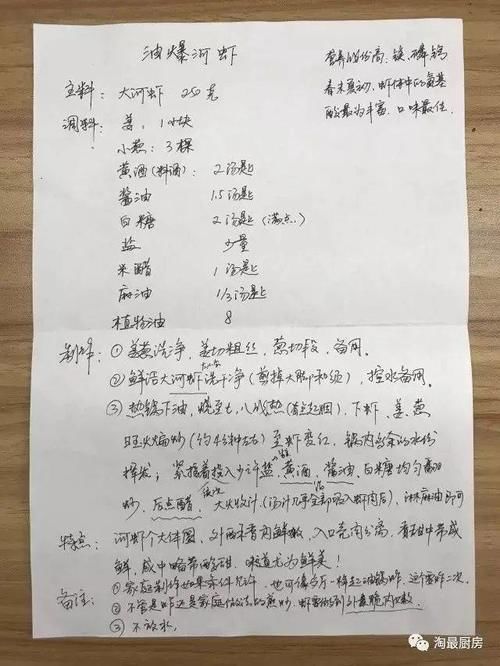 油爆河虾
营养价值高、镁、磷钙
春末夏初,虾体中的氨基
酸最为丰富、口味最佳.
主料: 大河虾 250克
调料: 姜: 1小块
小葱: 3棵
黄酒(料酒): 2汤匙
酱油 1.5汤匙
白糖 2汤匙(满点.)
盐 少量
米醋 1汤匙
麻油 1/3汤匙
植物油 8
制作: ①姜葱洗净,姜切粗丝,葱切段,备用。
②鲜活大河虾洗干净(剪掉大脚和须),控水备用。
③热锅下油,烧至七、八成热(有点起烟),下虾、姜、葱
旺火煸炒(约4分钟左右)至虾变红,锅内多余的水份
挥发;紧接着投入少许盐、黄酒、酱油、白糖均匀翻
炒,后点醋、大火收汁(汤汁几乎全部吸入虾肉后),淋麻油即可
特点: 河虾个大体圆,外香内鲜嫩,入口壳肉分离,香甜中带咸
鲜,咸中略带酸甜,味道尤为鲜美!
备注: ①家庭制作如果条件允许,也可像饭店一样起油锅炸,这个要炸二次
②不管是炸还是家庭做法的煎炒,虾要做到外脆内嫩
③不放水.
淘最厨房